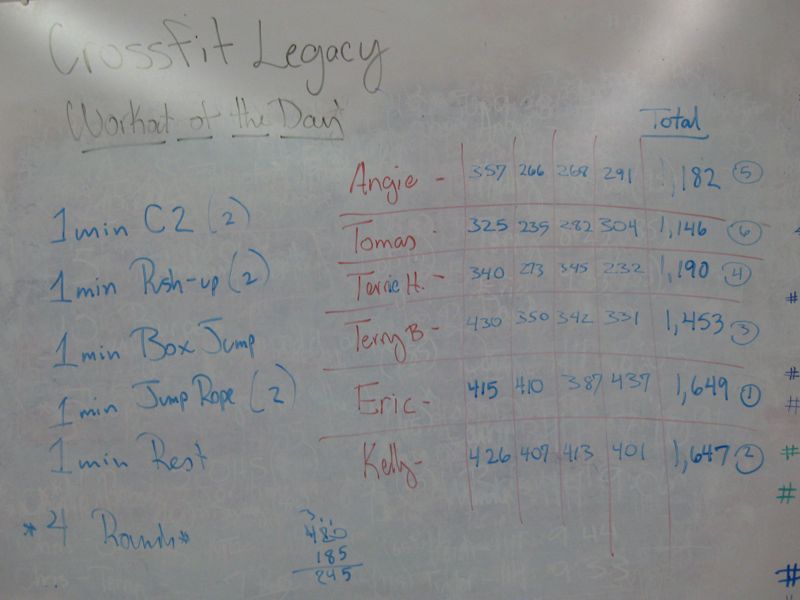 CrossFit Legacy
Workout of the Day
Total
Angie - 357 266 268 291 1,182 5
Tomas - 325 235 282 304 1,146 6
Terrie H. - 340 273 345 232 1,190 4
Terry B - 430 350 342 331 1,453 3
Eric - 415 410 387 437 1,649 1
Kelly - 426 407 413 401 1,647 2
1 min C2 (2)
1 min Push-up (2)
1 min Box Jump
1 min Jump Rope (2)
1 min Rest
*4 Rounds*
185
245
#
#
#
#
#
#